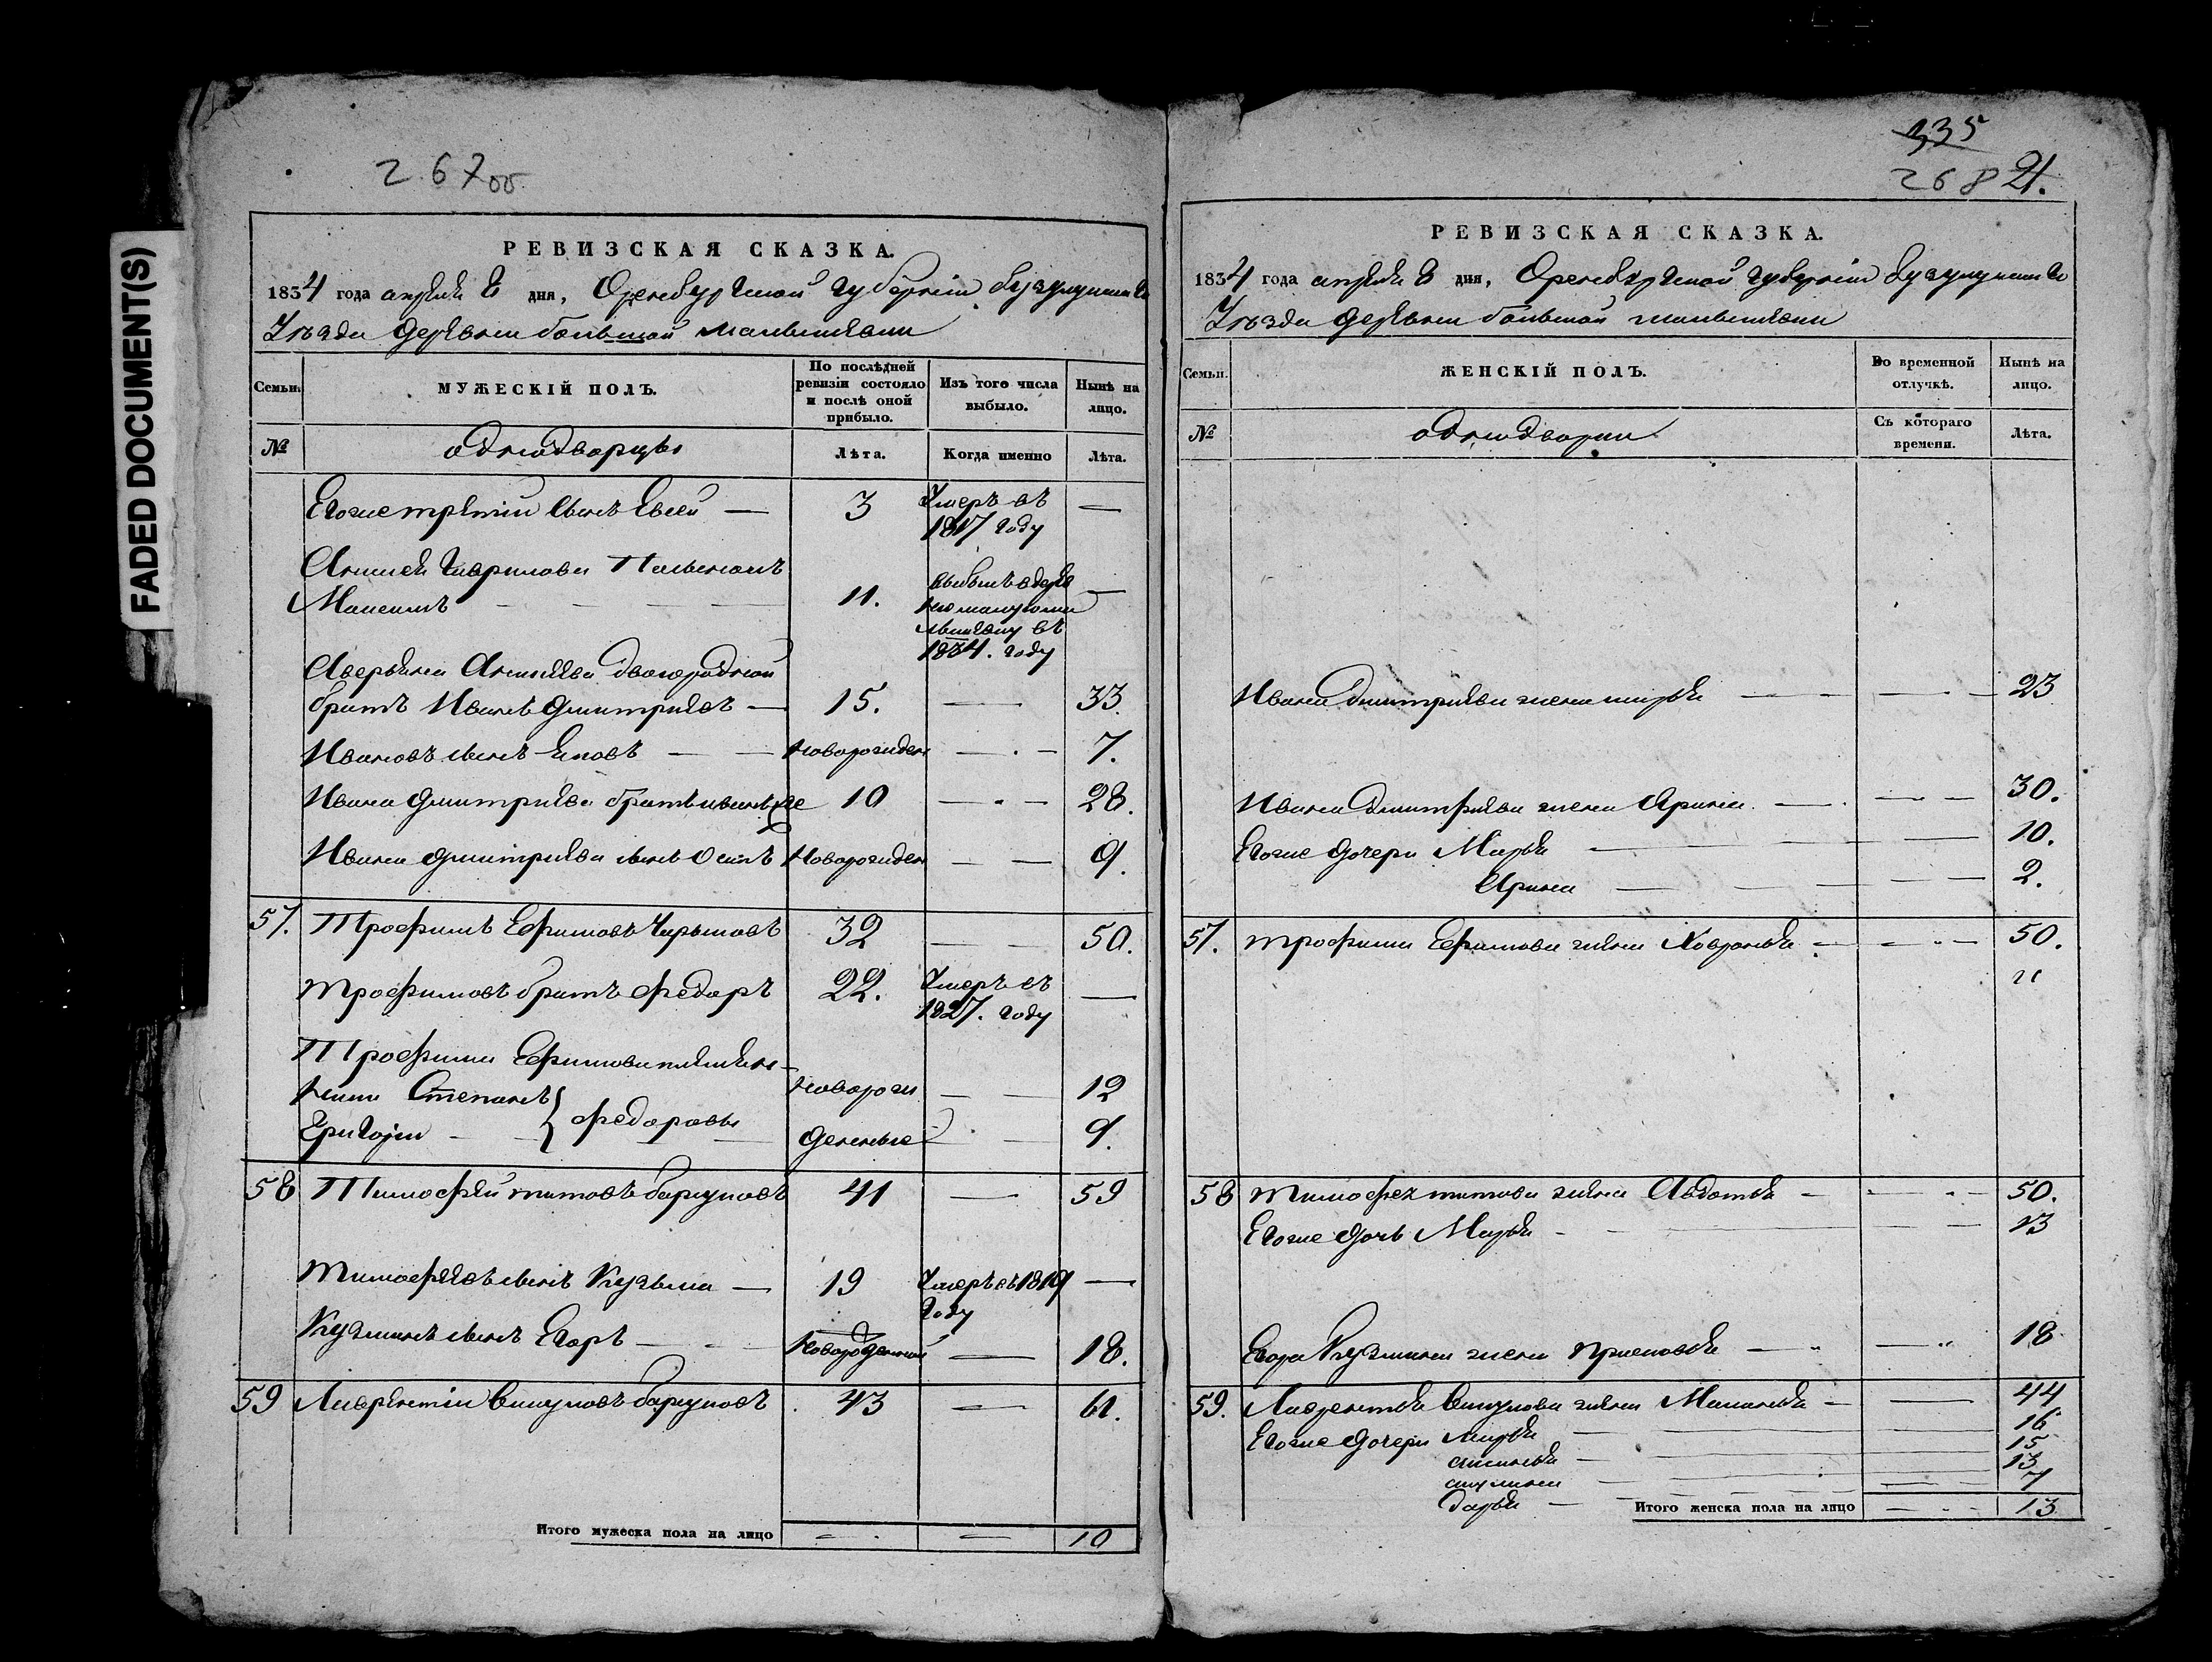 FADED DOCUMENT(S)
267 об.
РЕВИЗСКАЯ СКАЗКА.
1834 года апреля 8 дня, Оренбургской губернии Бузулукскаго
Уезда деревни большой
Семьи.
МУЖЕСКІЙ ПОЛЪ.
По послѣдней ревизіи состояло и послѣ оной прибыло.
Изъ того числа выбыло.
Нынѣ на лицо.
№
однодворцы
Лѣта.
Когда именно
Лѣта.
Егоже третий сынъ Евсей — 3 Умеръ въ —
1817 году
Гаврилова
11. —
въ
1834. году
Аверьяна двоюродной
братъ Иванъ Дмитриевъ — 15. — 33.
Ивановъ сынъ — новорожден — 7.
Ивана Дмитриева братъ Иванъ же 10 — 28.
Ивана Дмитриева сынъ Осипъ Новорожден — 9.
57. Трофимъ Ефимовъ 32 — 50.
Трофимовъ братъ Федоръ 22. Умеръ въ —
1827. году
Трофима Ефимова племян-
ники Степанъ новорож — 12
Григорий } Федоровы денные — 9.
58 Тимофей Титовъ 41 — 59
Тимофеевъ сынъ Кузьма — 19 Умеръ въ 1819 —
году
Кузминъ сынъ Егоръ — новорожденной — 18.
59 Лаврентий 43 — 61.
Итого мужеска пола на лицо — — 10
335
268 21.
РЕВИЗСКАЯ СКАЗКА.
1834 года апреля 8 дня, Оренбургской губернии Бузулукскаго
Уезда деревни большой
Семьи.
ЖЕНСКІЙ ПОЛЪ.
Во временной отлучкѣ.
Нынѣ на лицо.
№
однодворки
Съ котораго времени.
Лѣта.
Ивана Дмитриева жена Марья — — 23
Ивана Дмитриева жена Арина — — 30.
Егоже дочери Марья — 10.
Арина — 2.
57. Трофима Ефимова жена Ховронья — — 50.
58 Тимофея Титова жена Авдотья — — 50.
Егоже дочь Марья — 13
Егора Кузмина жена — — 18
59. Лаврентья жена Маланья — — 44
Егоже дочери Марья — 16
15
13
Дарья — 7
Итого женска пола на лицо — 13